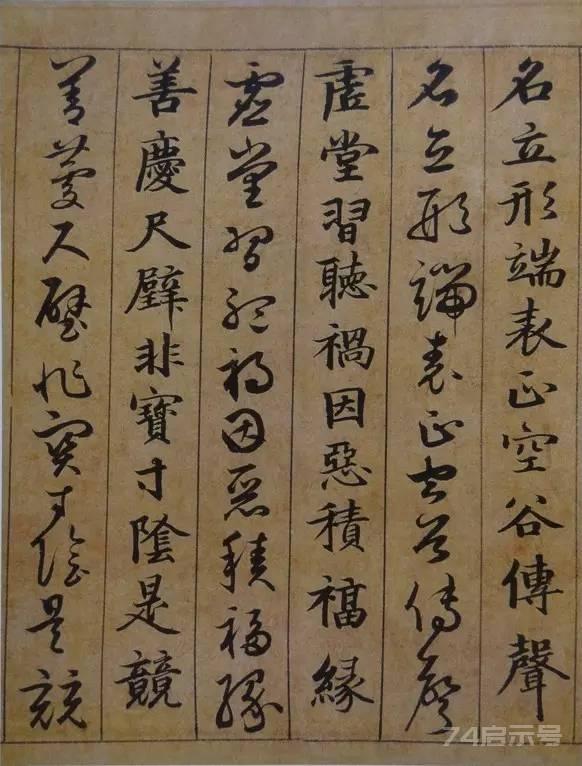 名立形端表正空谷傳聲
名立形端表正空谷傳聲
虛堂習聽禍因惡積福緣
虛堂習聽禍因惡積福緣
善慶尺璧非寶寸陰是競
善慶尺璧非寶寸陰是競
74启示号